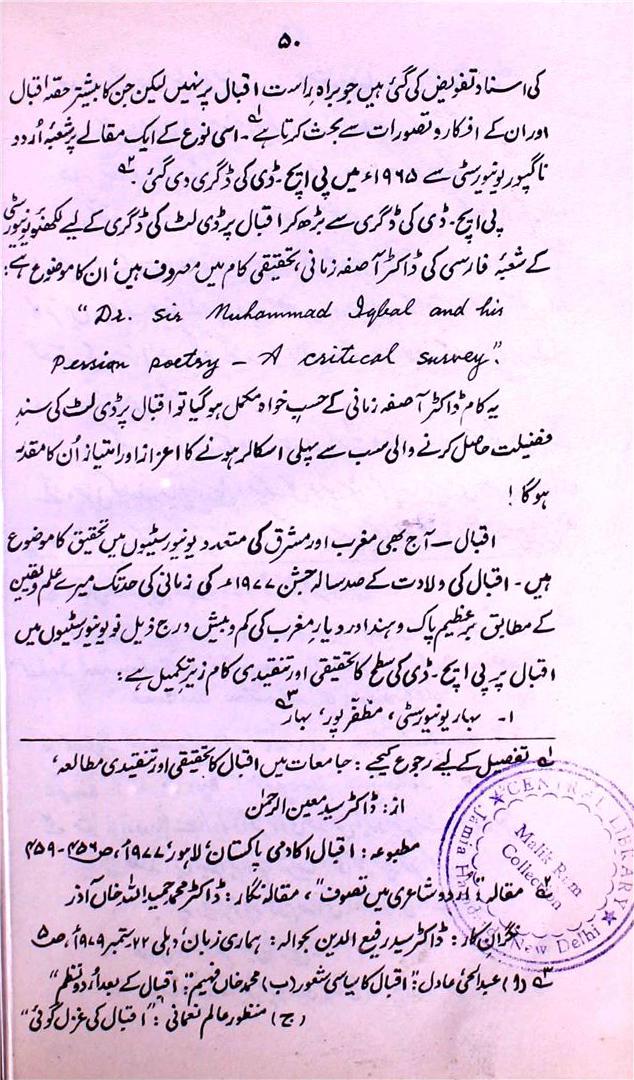 ۵۰
کی اسناد تفویض کی گئی ہیں جو براہ راست اقبال پر نہیں لیکن جن کا بیشتر حصّہ اقبال
اور ان کے افکار و تصورات سے بحث کرتا ہے۱۔ اسی نوع کے ایک مقالے پر شعبۂ اُردو
ناگپور یونیورسٹی سے ۱۹۶۵ء میں پی ایچ۔ڈی کی ڈگری دی گئی۲۔
پی ایچ۔ڈی کی ڈگری سے بڑھ کر اقبال پر ڈی لٹ کی ڈگری کے لیے لکھنؤ یونیورسٹی
کے شعبۂ فارسی کی ڈاکٹر آصفہ زمانی، تحقیقی کام میں مصروف ہیں، ان کا موضوع ہے:
"Dr. Sir Muhammad Iqbal and his
Persian poetry — A critical survey".
یہ کام ڈاکٹر آصفہ زمانی کے حسبِ خواہ مکمل ہوگیا تو اقبال پر ڈی لٹ کی سندِ
فضیلت حاصل کرنے والی سب سے پہلی اسکالر ہونے کا اعزاز اور امتیاز اُن کا مقدر
ہوگا!
اقبال — آج بھی مغرب اور مشرق کی متعدد یونیورسٹیوں میں تحقیق کا موضوع
ہیں۔ اقبال کی ولادت کے صد سالہ جشن ۱۹۷۷ء کی زمانی کی حد تک میرے علم و یقین
کے مطابق برِ عظیم پاک و ہند اور دیارِ مغرب کی کم و بیش درج ذیل نو یونیورسٹیوں میں
اقبال پر پی ایچ۔ڈی کی سطح کا تحقیقی اور تنقیدی کام زیرِ تکمیل ہے:
۱۔ بہار یونیورسٹی، مظفّر پور، بہار۳
۱ تفصیل کے لیے رجوع کیجیے: جامعات میں اقبال کا تحقیقی اور تنقیدی مطالعہ،
از: ڈاکٹر سید معین الرحمٰن
مطبوعہ: اقبال اکادمی پاکستان، لاہور، ۱۹۷۷ء، ص ۴۵۶-۴۵۹
۲ مقالہ: "اردو شاعری میں تصوف"، مقالہ نگار: ڈاکٹر محمد حمید اللہ خاں آذر
نگران کار: ڈاکٹر سید رفیع الدین بحوالہ: ہماری زبان، دہلی ۲۲ ستمبر ۱۹۷۹ء، ص ۵
۳ (ا) عبدالحئی عادل: "اقبال کا سیاسی شعور (ب) محمد خاں فہیم: "اقبال کے بعد اُردو نظم"
(ج) منظور عالم نعمانی: "اقبال کی غزل گوئی"
CENTRAL LIBRARY
Malik Ram
Collection
Jamia
New Delhi